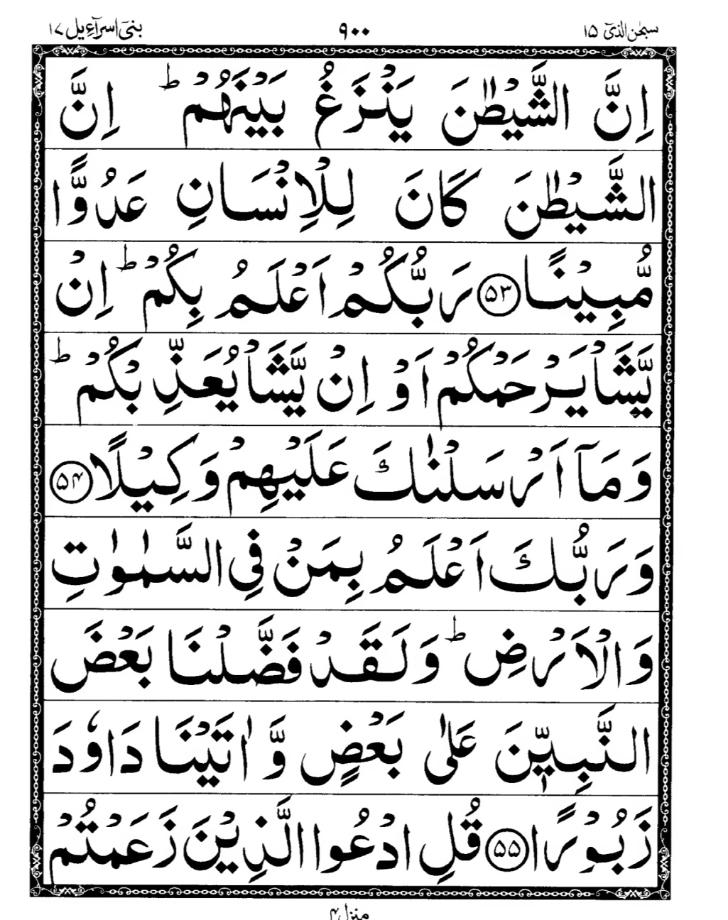 سبحٰن الذیٓ ۱۵ ۹۰۰ بنیٓ اسرآءیل ۱۷
اِنَّ الشَّيْطٰنَ يَنْزَغُ بَيْنَهُمْ ؕ اِنَّ
الشَّيْطٰنَ كَانَ لِلْاِنْسَانِ عَدُوًّا
مُّبِيْنًا ﴿۵۳﴾ رَبُّكُمْ اَعْلَمُ بِكُمْ ؕ اِنْ
يَّشَاْ يَرْحَمْكُمْ اَوْ اِنْ يَّشَاْ يُعَذِّبْكُمْ ؕ
وَمَاۤ اَرْسَلْنٰكَ عَلَيْهِمْ وَكِيْلًا ﴿۵۴﴾
وَرَبُّكَ اَعْلَمُ بِمَنْ فِى السَّمٰوٰتِ
وَالْاَرْضِ ؕ وَلَقَدْ فَضَّلْنَا بَعْضَ
النَّبِيّٖنَ عَلٰى بَعْضٍ وَّاٰتَيْنَا دَاوٗدَ
زَبُوْرًا ﴿۵۵﴾ قُلِ ادْعُوا الَّذِيْنَ زَعَمْتُمْ
منزل ۴